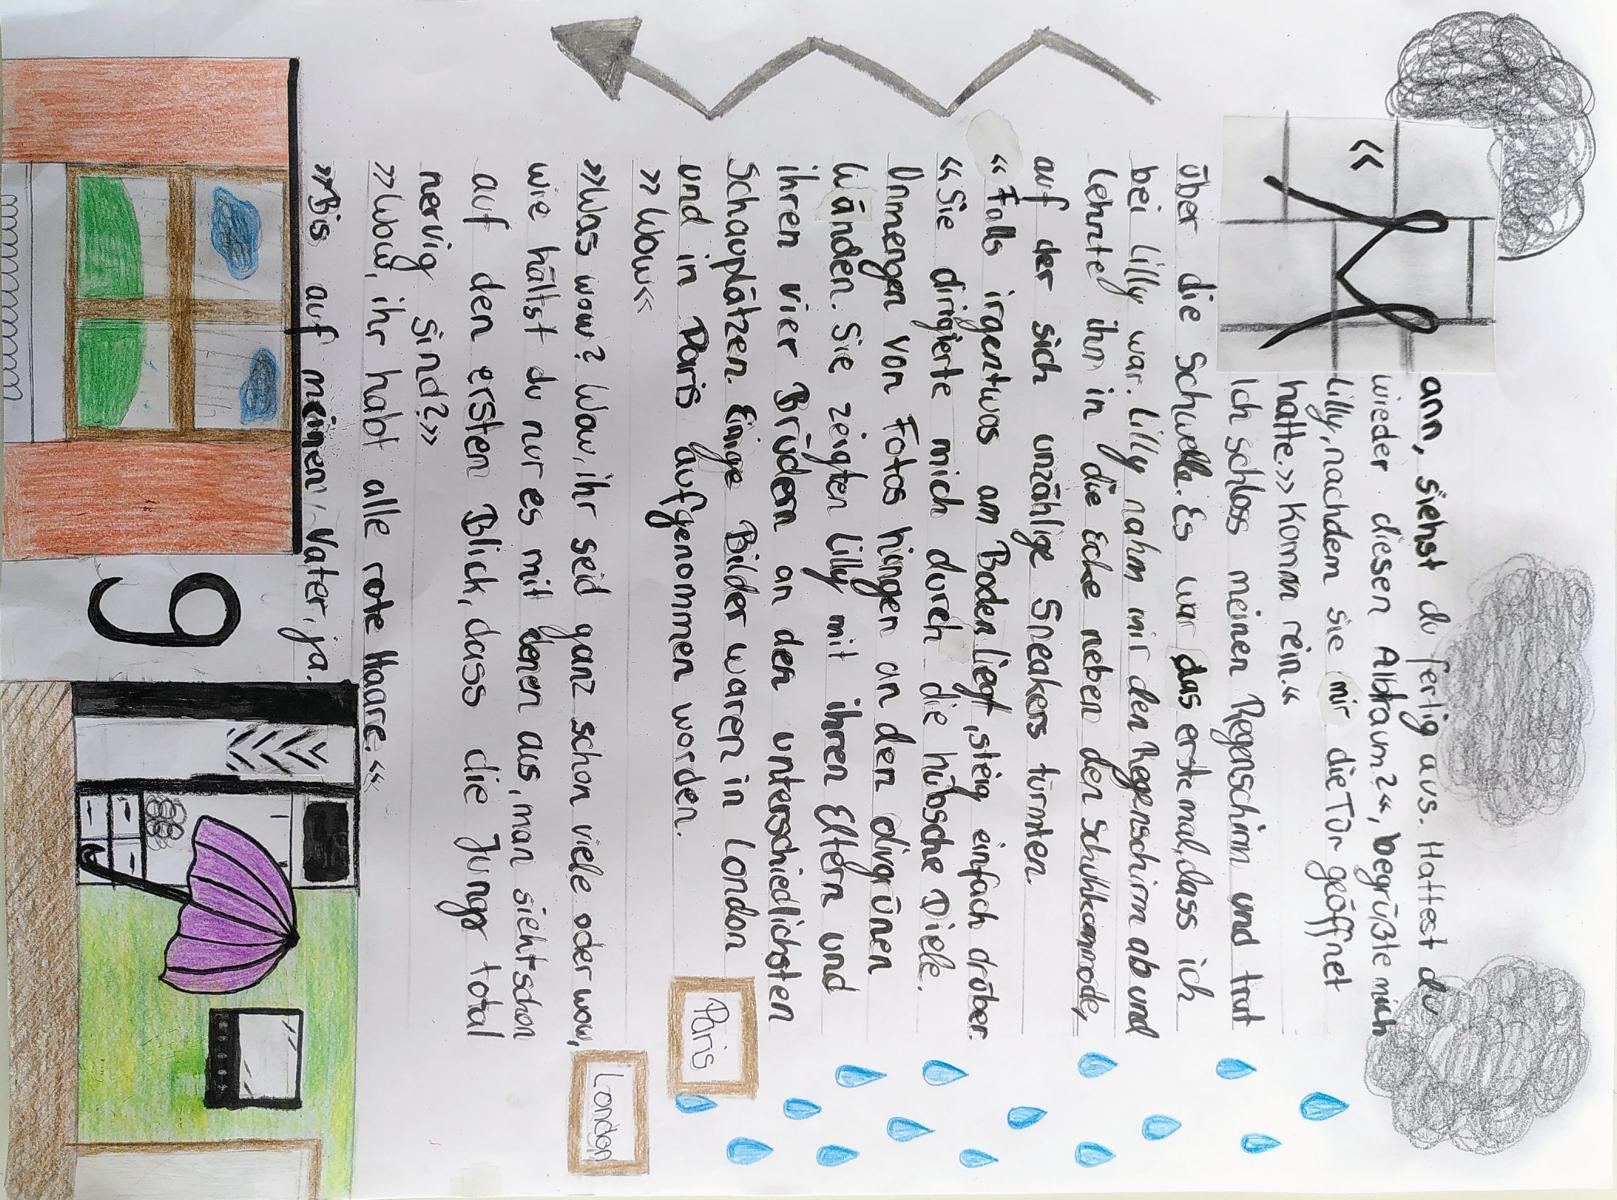 »Mann, siehst du fertig aus. Hattest du
wieder diesen Albtraum?«, begrüßte mich
Lilly, nachdem sie mir die Tür geöffnet
hatte. »Komm rein«
Ich schloss meinen Regenschirm und trat
über die Schwelle. Es war das erste mal, dass ich
bei Lilly war. Lilly nahm mir den Regenschirm ab und
lehnte ihn in die Ecke neben den Schuhkommode,
auf der sich unzählige Sneakers türmten.
«Falls irgentwas am Boden liegt, steig einfach drüber.
«Sie dirigierte mich durch die hübsche Diele.
Unmengen von Fotos hingen an den dirgrünen
Wänden. Sie zeigten Lilly mit ihren Eltern und
ihren vier Brüdern an den unterschiedlichsten
Schauplätzen. Einige Bilder waren in London
und in Paris aufgenommen worden.
»Wow«
»Was wow? Wow, ihr seid ganz schon viele oder wow,
wie hältst du nur es mit denen aus, man sieht schon
auf den ersten Blick, dass die Jungs total
nervig sind?»
»Wow, ihr habt alle rote Haare.«
»Bis auf meinen Vater, ja.
Paris
London
9